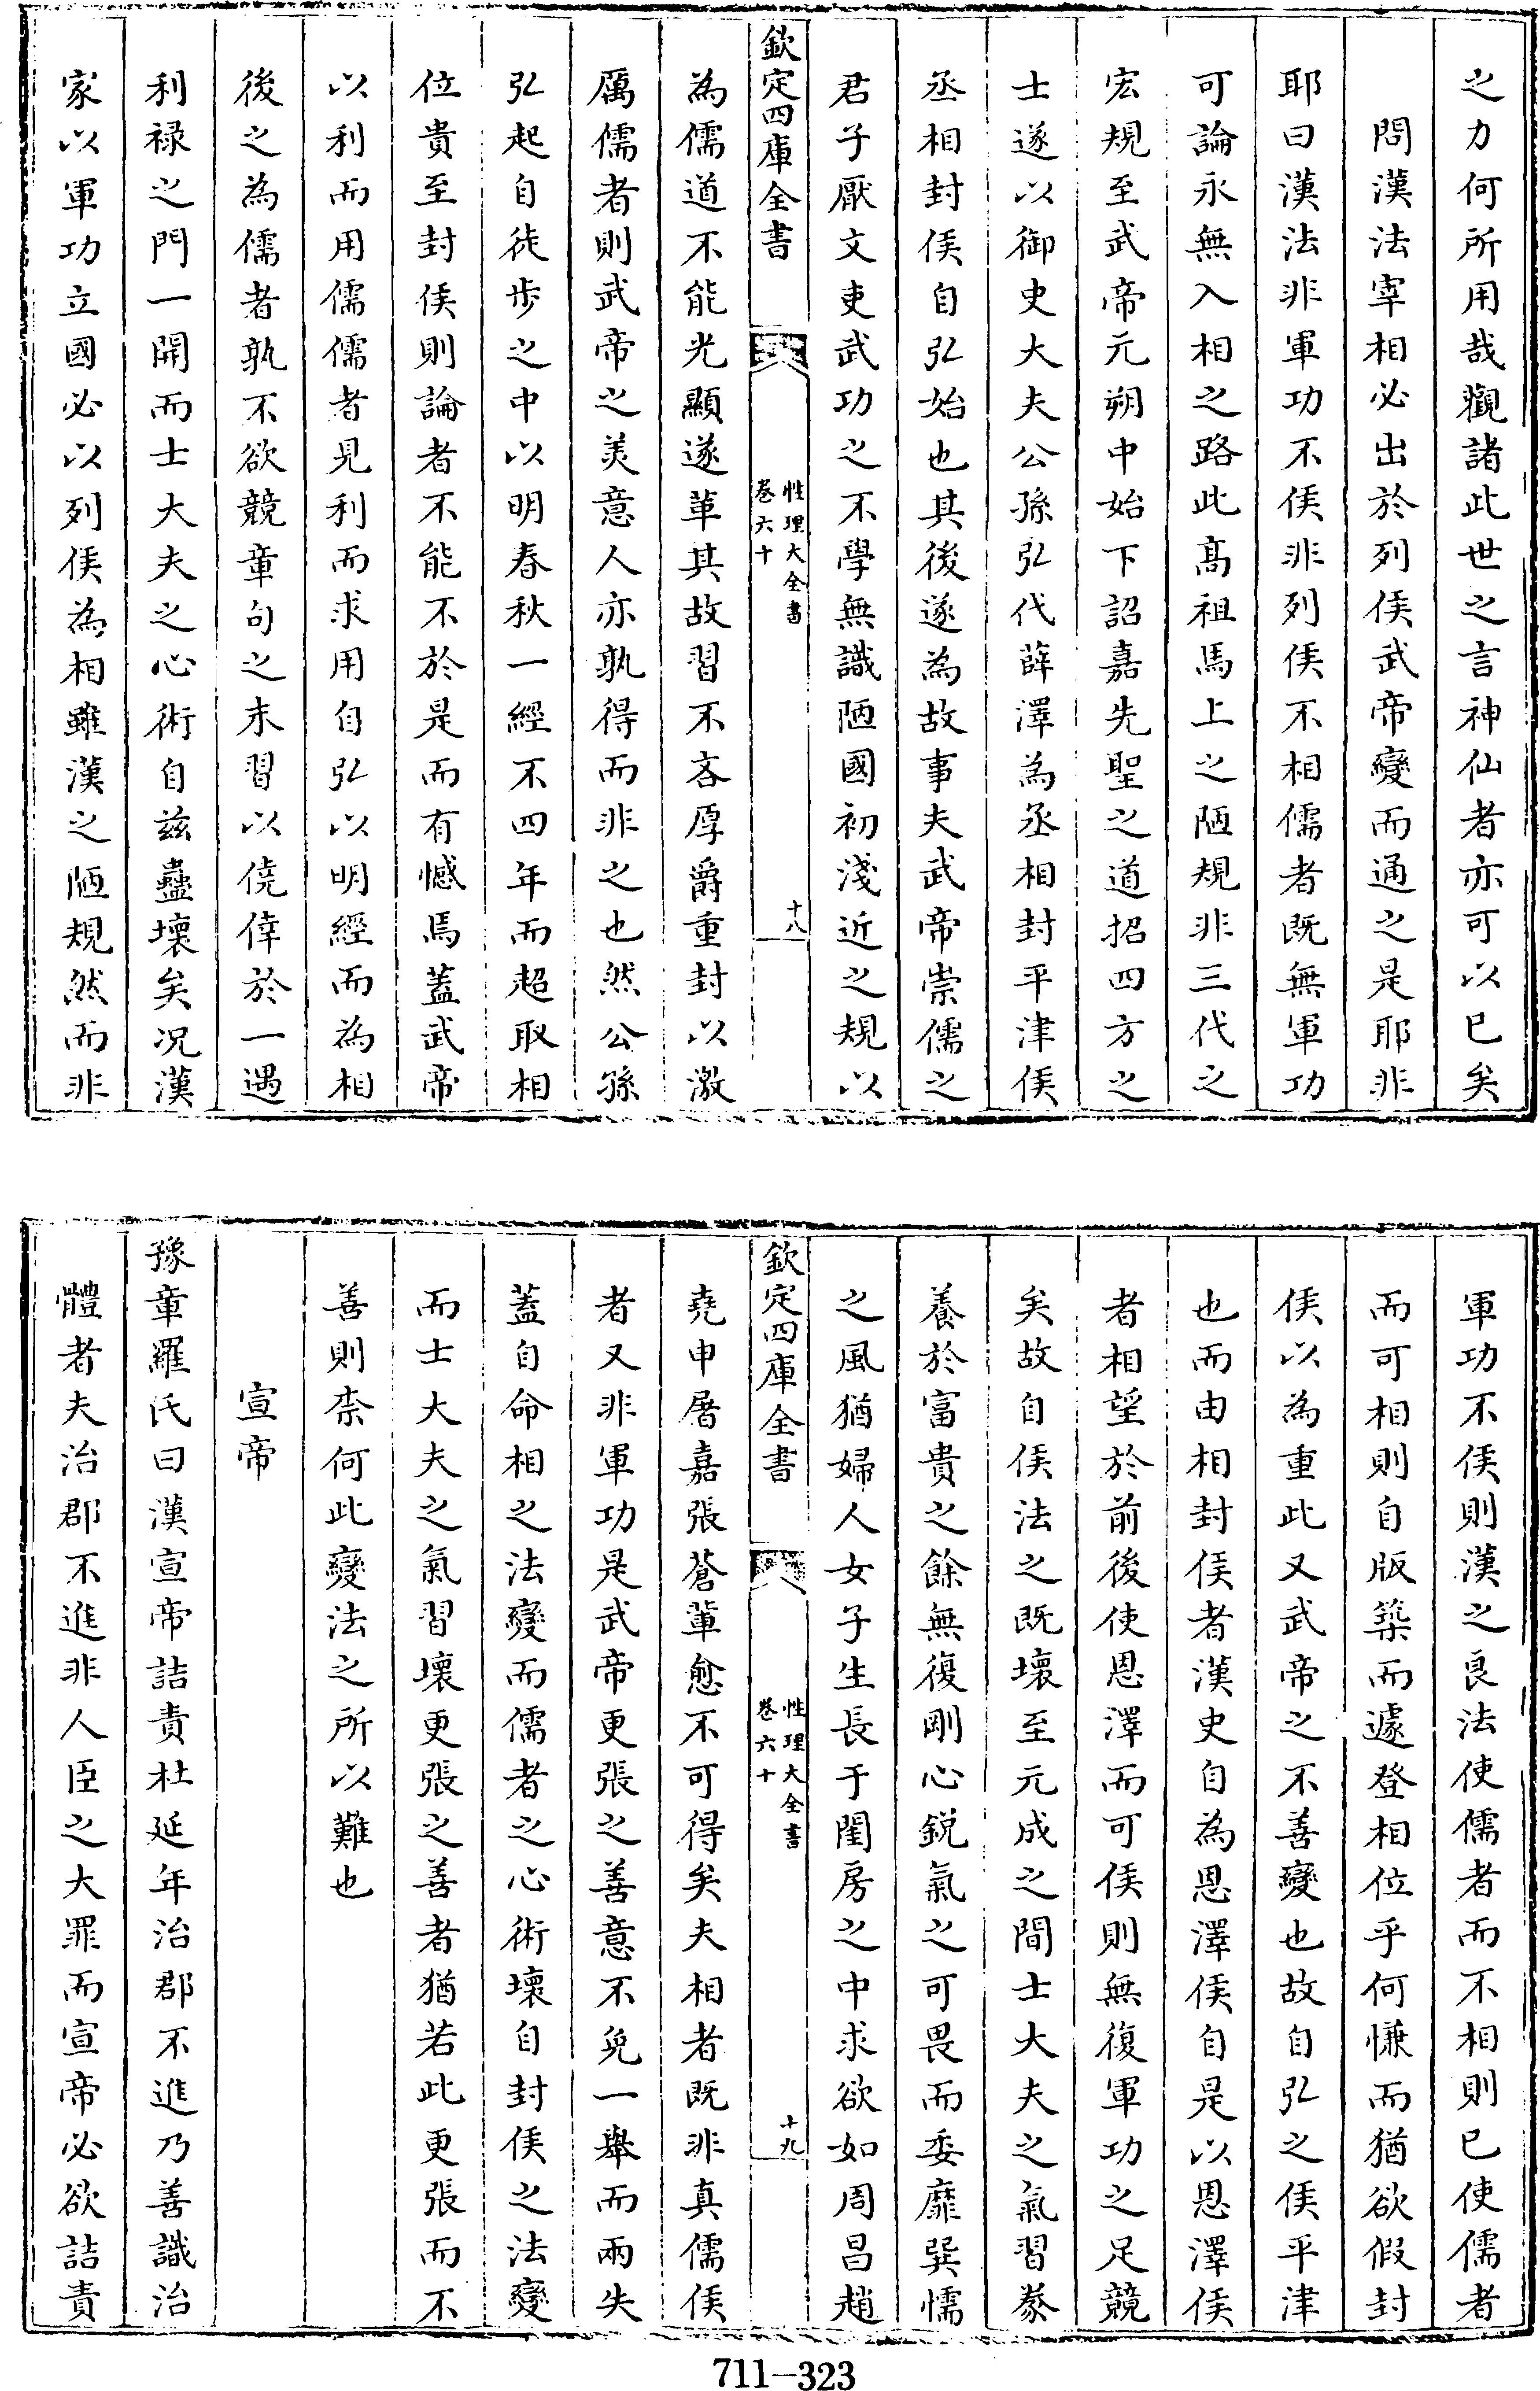 之力何所用哉觀諸此世之言神仙者亦可以已矣
問漢法宰相必出於列侯武帝變而通之是耶非
耶曰漢法非軍功不侯非列侯不相儒者既無軍功
可論永無入相之路此髙祖馬上之陋規非三代之
宏規至武帝元朔中始下詔嘉先聖之道招四方之
士遂以御史大夫公孫弘代薛澤為丞相封平津侯
丞相封侯自弘始也其後遂為故事夫武帝崇儒之
君子厭文吏武功之不學無識陋國初淺近之規以
欽定四庫全書
性理大全書
卷六十
十八
為儒道不能光顯遂革其故習不吝厚爵重封以激
厲儒者則武帝之美意人亦孰得而非之也然公孫
弘起自徒步之中以明春秋一經不四年而超取相
位貴至封侯則論者不能不於是而有憾焉蓋武帝
以利而用儒儒者見利而求用自弘以明經而為相
後之為儒者孰不欲競章句之末習以僥倖於一遇
利禄之門一開而士大夫之心術自兹蠱壞矣况漢
家以軍功立國必以列侯為相雖漢之陋規然而非
軍功不侯則漢之良法使儒者而不相則已使儒者
而可相則自版築而遽登相位乎何慊而猶欲假封
侯以為重此又武帝之不善變也故自弘之侯平津
也而由相封侯者漢史自為恩澤侯自是以恩澤侯
者相望於前後使恩澤而可侯則無復軍功之足競
矣故自侯法之既壞至元成之間士大夫之氣習豢
養於富貴之餘無復剛心銳氣之可畏而委靡巽懦
之風猶婦人女子生長于閨房之中求欲如周昌趙
欽定四庫全書
性理大全書
卷六十
十九
堯申屠嘉張蒼輩愈不可得矣夫相者既非真儒侯
者又非軍功是武帝更張之善意不免一舉而兩失
蓋自命相之法變而儒者之心術壞自封侯之法變
而士大夫之氣習壞更張之善者猶若此更張而不
善則柰何此變法之所以難也
宣帝
豫章羅氏曰漢宣帝詰責杜延年治郡不進乃善識治
體者夫治郡不進非人臣之大罪而宣帝必欲詰責
711-323